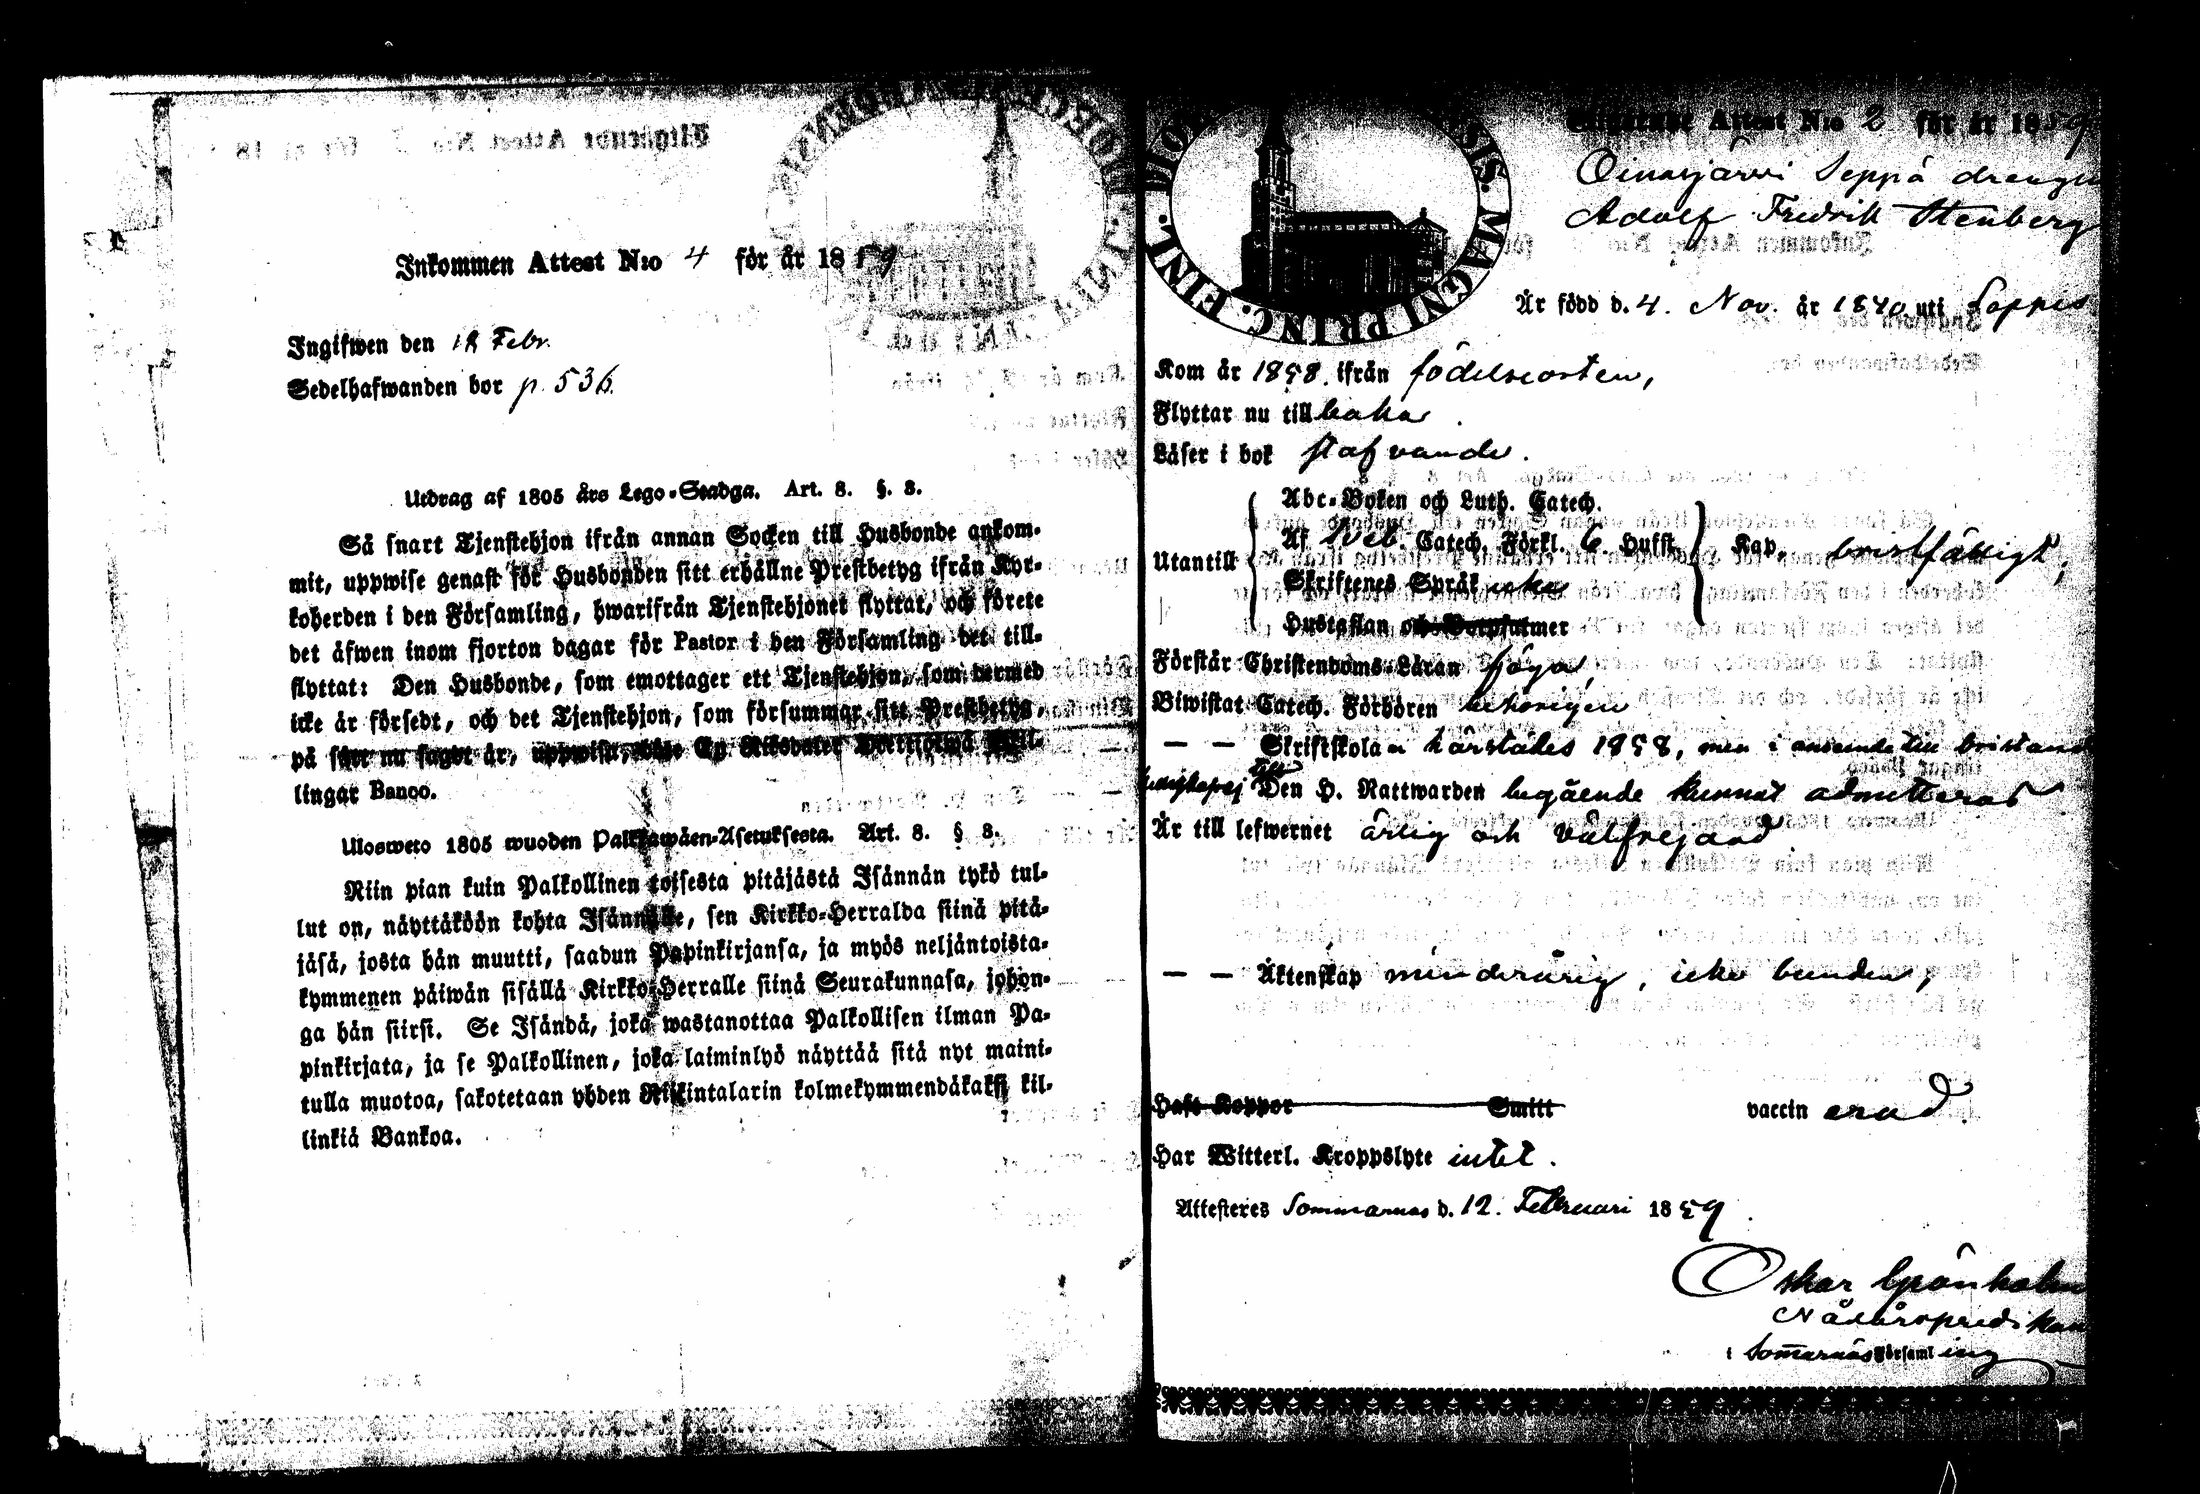 Inkommen Attest N:o 4 för år 1859
Ingifwen den 18 Febr.
Sedelhafwanden bor p. 536.
Utdrag af 1805 års Lego-Stadga. Art. 8. §. 3.
Så snart Tjenstehjon ifrån annan Socken till Husbonde ankom-
mit, uppwise genast för Husbonden sitt erhållne Prestbetyg ifrån Kyr-
koherden i den Församling, hwarifrån Tjenstehjonet flyttat, och förete
det äfwen inom fjorton dagar för Pastor i den Församling det till-
flyttat: Den Husbonde, som emottager ett Tjenstehjon, som dermed
icke är försedt, och det Tjenstehjon, som försummar sitt Prestbetyg,
på sätt nu sagdt är, uppwisa, böte En Riksdaler trettiotwå Skil-
lingar Banco.
Ulosweto 1805 wuoden Palkkawäen-Asetuksesta. Art. 8. § 3.
Niin pian kuin Palkollinen toisesta pitäjästä Isännän tykö tul-
lut on, näyttäköön kohta Isännälle, sen Kirkko-Herralda siinä pitä-
jäsä, josta hän muutti, saadun Papinkirjansa, ja myös neljäntoista-
kymmenen päiwän sisällä Kirkko-Herralle siinä Seurakunnasa, johon-
ga hän siirsi. Se Isändä, joka wastanottaa Palkollisen ilman Pa-
pinkirjata, ja se Palkollinen, joka laiminlyö näyttää sitä nyt maini-
tulla muotoa, sakotetaan yhden Riikintalarin kolmekymmendäkaksi kil-
linkiä Bankoa.
DIOECESIS. MAGNI PRINC. FINL.
Attest N:o 2 för år 1859
Oinasjärvi Seppä dräng
Adolf Fredrik Stenberg
Är född d. 4. Nov. år 1840 uti Loppis
Kom år 1858. ifrån födelseorten,
Flyttar nu tillbaka.
Läser i bok stafvande.
Abc-Boken och Luth. Catech.
Utantill Af Sveb. Catech. Förkl. 6. Hufst. Kap. bristfälligt;
Skriftenes Språk icke
Hustaflan och Botpsalmer
Förstår Christendoms-Läran föga,
Biwistat Catech. Förhören behörigen
— — Skriftskolan härstädes 1858, men i anseende till bristande
kunskap ej Den H. Nattwarden begående kunnat admitteras
Är till lefwernet ärlig och välfrejdad
— — Äktenskap minderårig, icke bunden,
Haft Koppor Smitt vaccinerad.
Har Witterl. Kroppslyte intet.
Attesteres Sommarnäs d. 12. Februari 1859.
Oskar Grönholm
Nådårspredikant
i Somernäs Församling